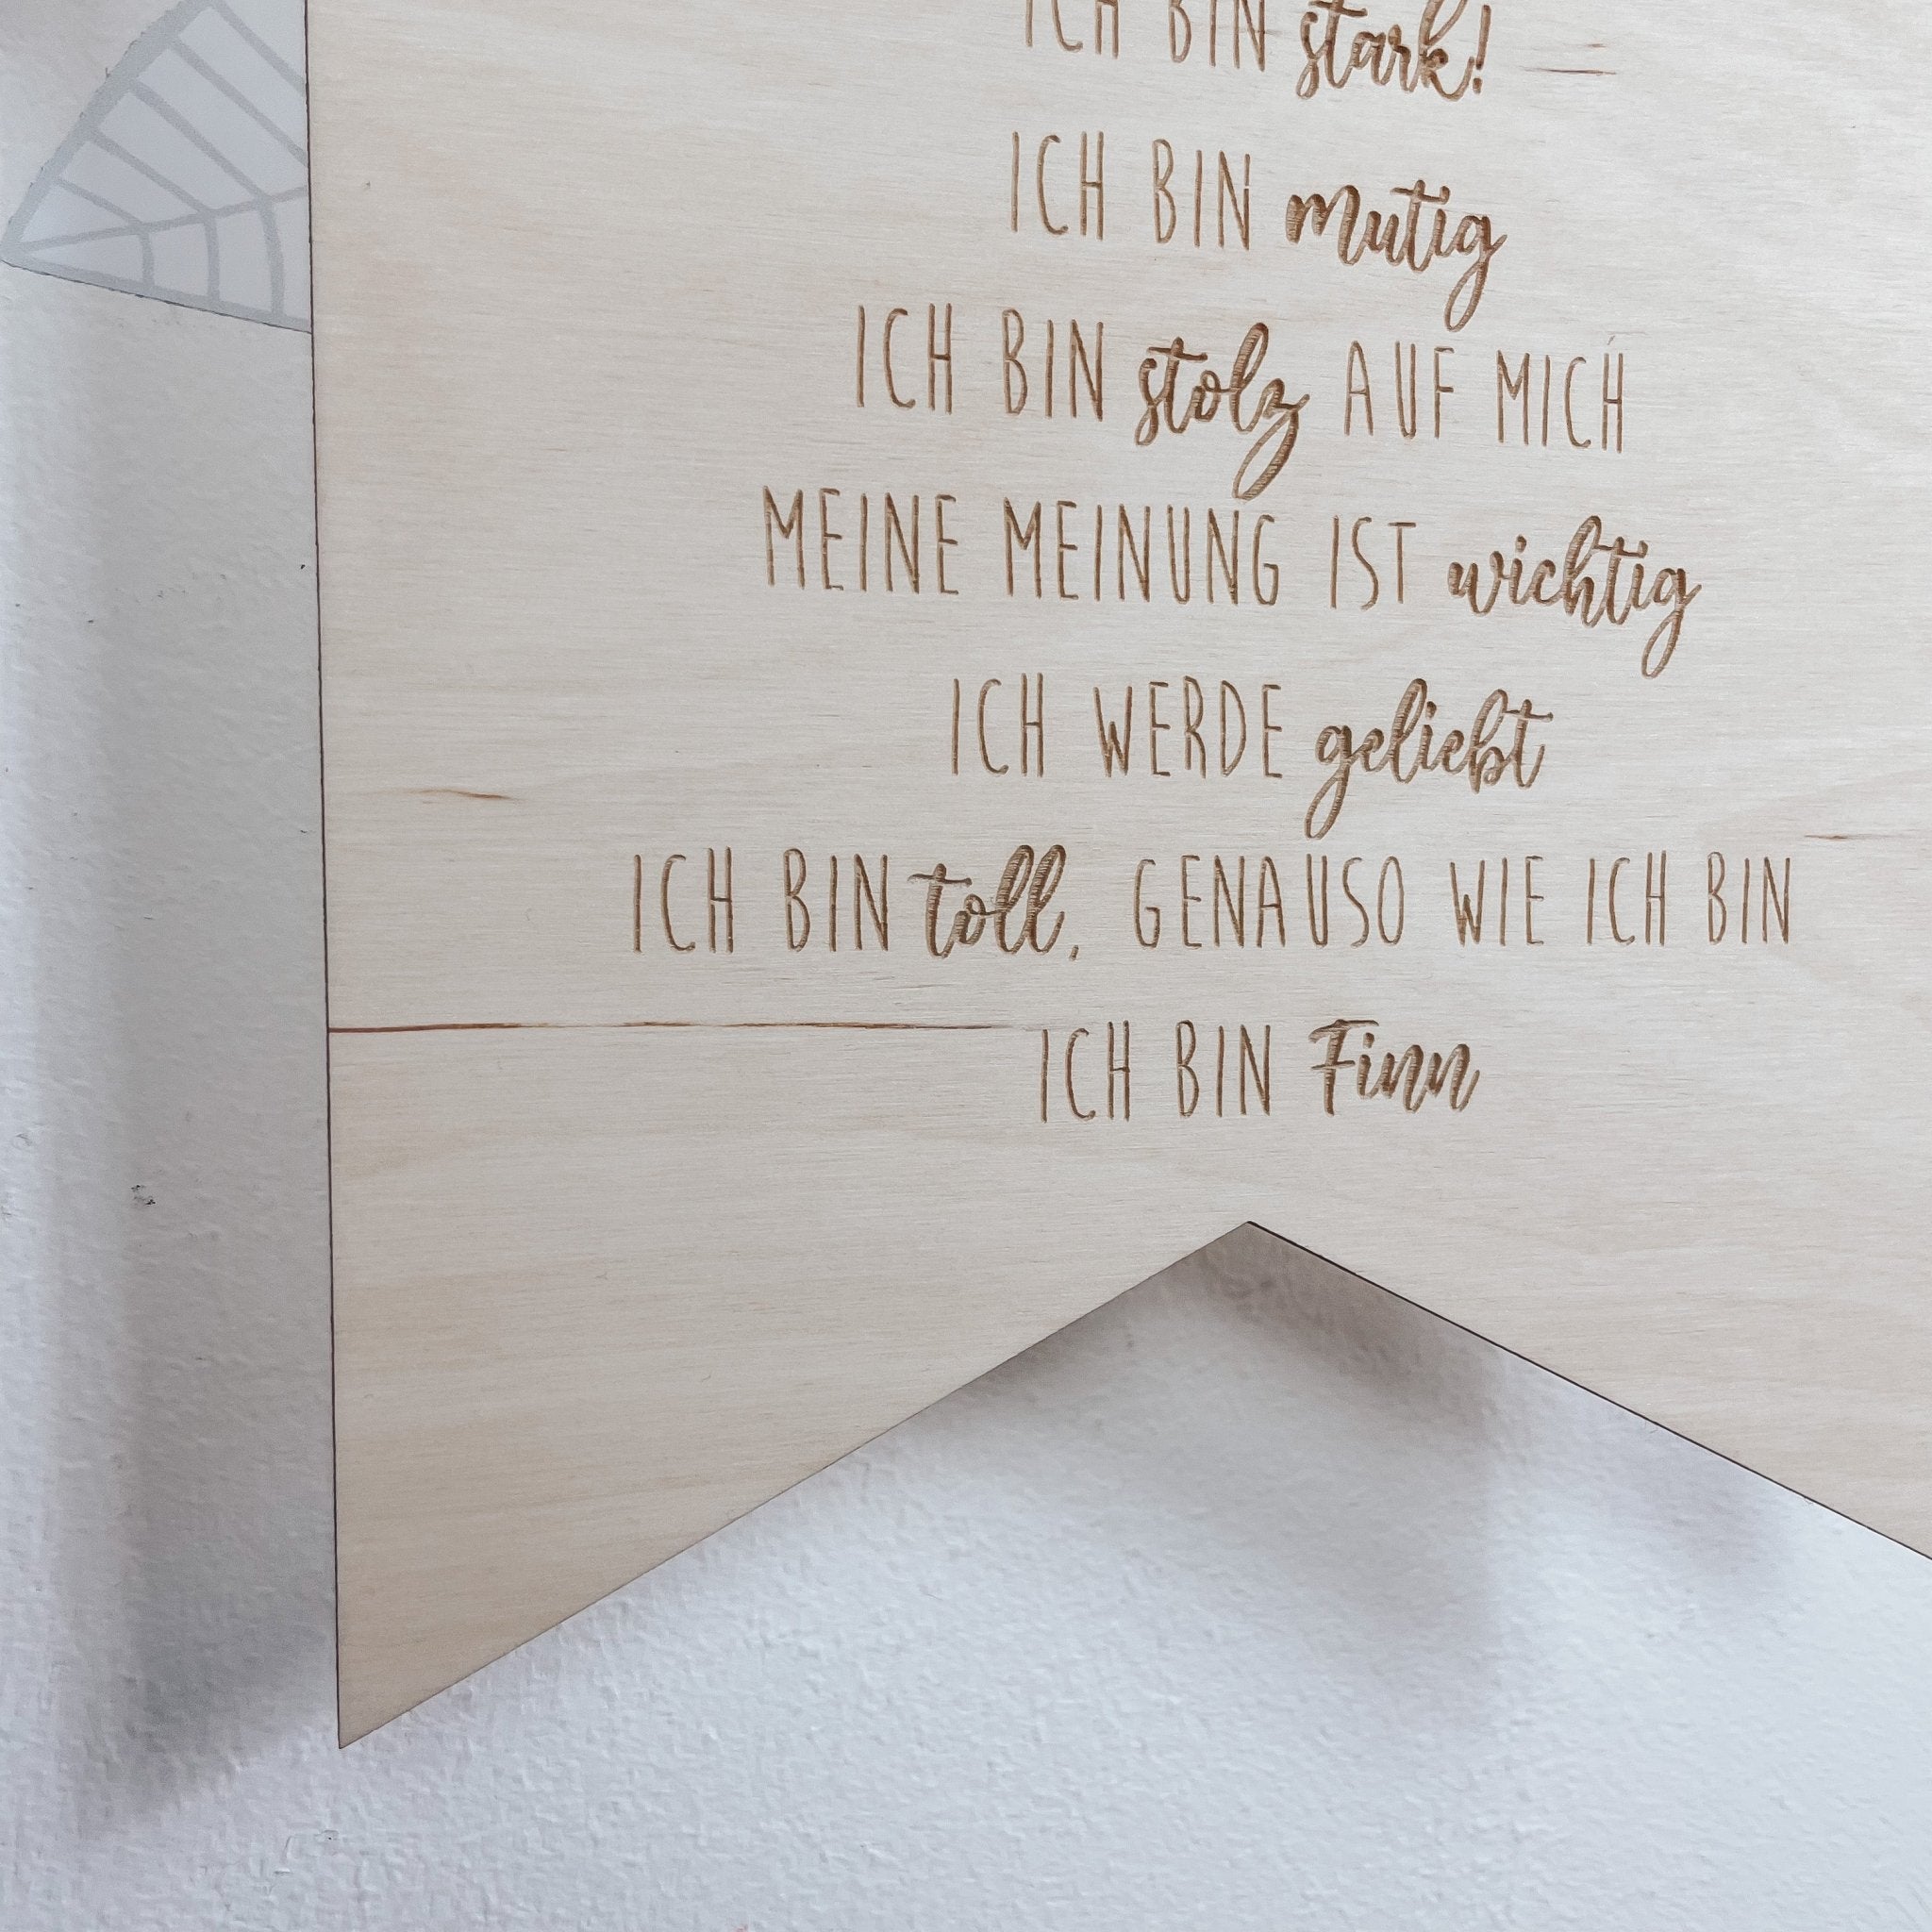 ICH BIN stark!
ICH BIN mutig
ICH BIN stolz AUF MICH
MEINE MEINUNG IST wichtig
ICH WERDE geliebt
ICH BIN toll, GENAUSO WIE ICH BIN
ICH BIN Finn